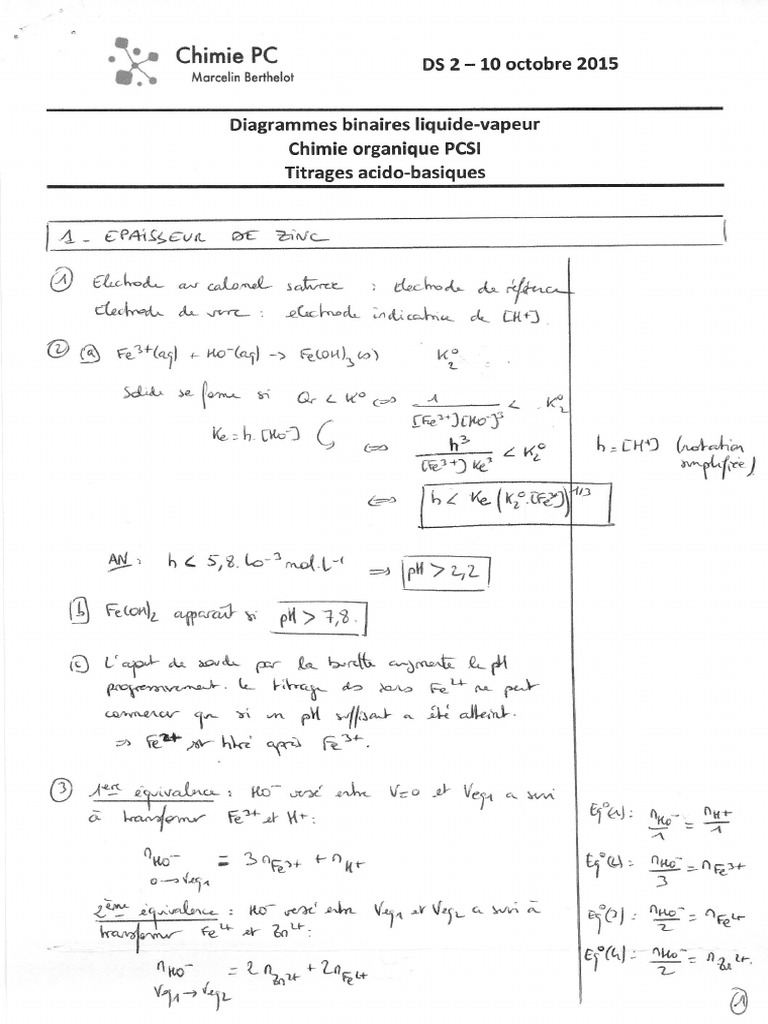 Chimie PC
Marcelin Berthelot
DS 2 – 10 octobre 2015
Diagrammes binaires liquide-vapeur
Chimie organique PCSI
Titrages acido-basiques
1 - EPAISSEUR DE ZINC
① Electrode au calomel saturée : électrode de référence
Electrode de verre : électrode indicatrice de [H+].
② ⓐ Fe³⁺(aq) + HO⁻(aq) → Fe(OH)₃(s) K₂°
Solide se forme si Qr < K° ⇔ 1/([Fe³⁺][HO⁻]³) < K₂°
Ke = h.[HO⁻] ⇔ h³/([Fe³⁺] Ke³) < K₂°
h = [H⁺] (notation
simplifiée)
⇔ h < Ke (K₂°.[Fe³⁺])^1/3
AN : h < 5,8.10⁻³ mol.L⁻¹ ⇒ pH > 2,2
ⓑ Fe(OH)₂ apparaît si pH > 7,8.
ⓒ L'ajout de soude par la burette augmente le pH
progressivement. Le titrage des ions Fe²⁺ ne peut
commencer que si un pH suffisant a été atteint.
⇒ Fe²⁺ est titré après Fe³⁺.
③ 1ère équivalence : HO⁻ versé entre V=0 et Veq1 a servi
à transformer Fe³⁺ et H⁺ :
Eq°(1) : nHO⁻/1 = nH+/1
nHO⁻ = 3 nFe³⁺ + nH+
0→Veq1
Eq°(2) : nHO⁻/3 = nFe³⁺
2ème équivalence : HO⁻ versé entre Veq1 et Veq2 a servi à
transformer Fe²⁺ et Zn²⁺ :
Eq°(3) : nHO⁻/2 = nFe²⁺
nHO⁻ = 2 nZn²⁺ + 2 nFe²⁺
Veq1→Veq2
Eq°(4) : nHO⁻/2 = nZn²⁺.
①